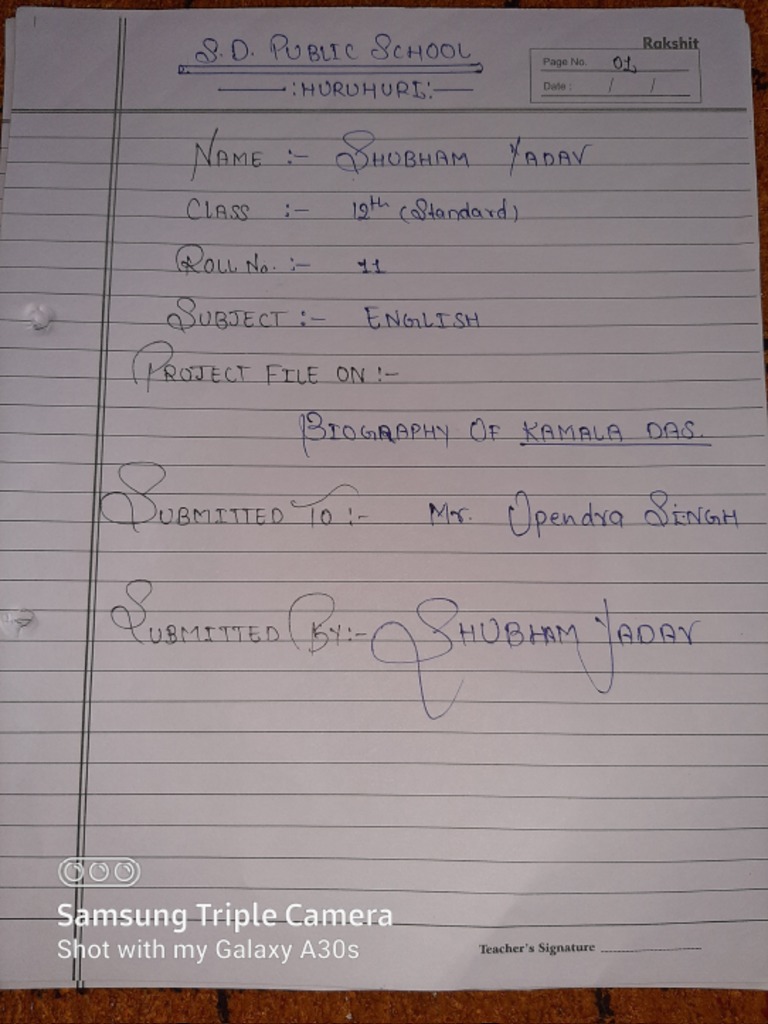 S.D. PUBLIC SCHOOL
:HURUHURI:
Rakshit
Page No. 01
Date : / /
NAME :- SHUBHAM YADAV
CLASS :- 12th (Standard)
ROLL No. :- 11
SUBJECT :- ENGLISH
PROJECT FILE ON :-
BIOGRAPHY OF KAMALA DAS.
SUBMITTED TO :- Mr. Opendra SINGH
SUBMITTED BY:- SHUBHAM YADAV
Samsung Triple Camera
Shot with my Galaxy A30s
Teacher's Signature